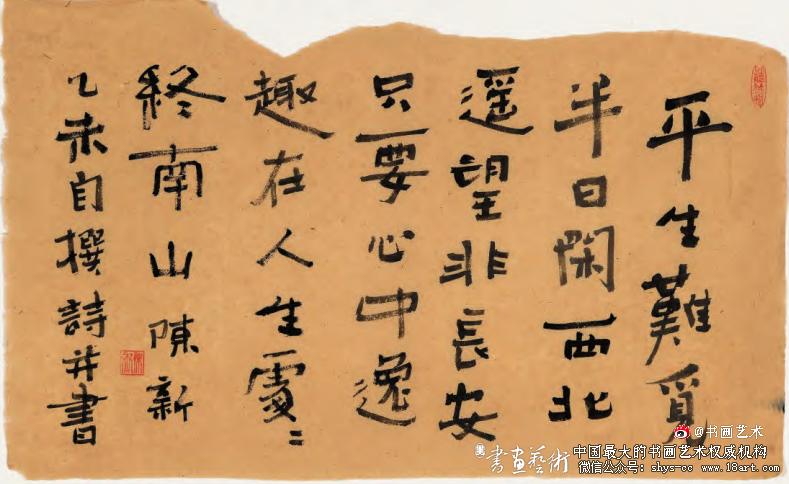 平生難覓
半日閑西北
遥望非長安
只要心中逸
趣在人生處〻
終南山陳新
乙未自撰詩并書
@书画艺术
書画艺術
中国最大的书画艺术权威机构
微信公众号: shys-cc www.18art.com